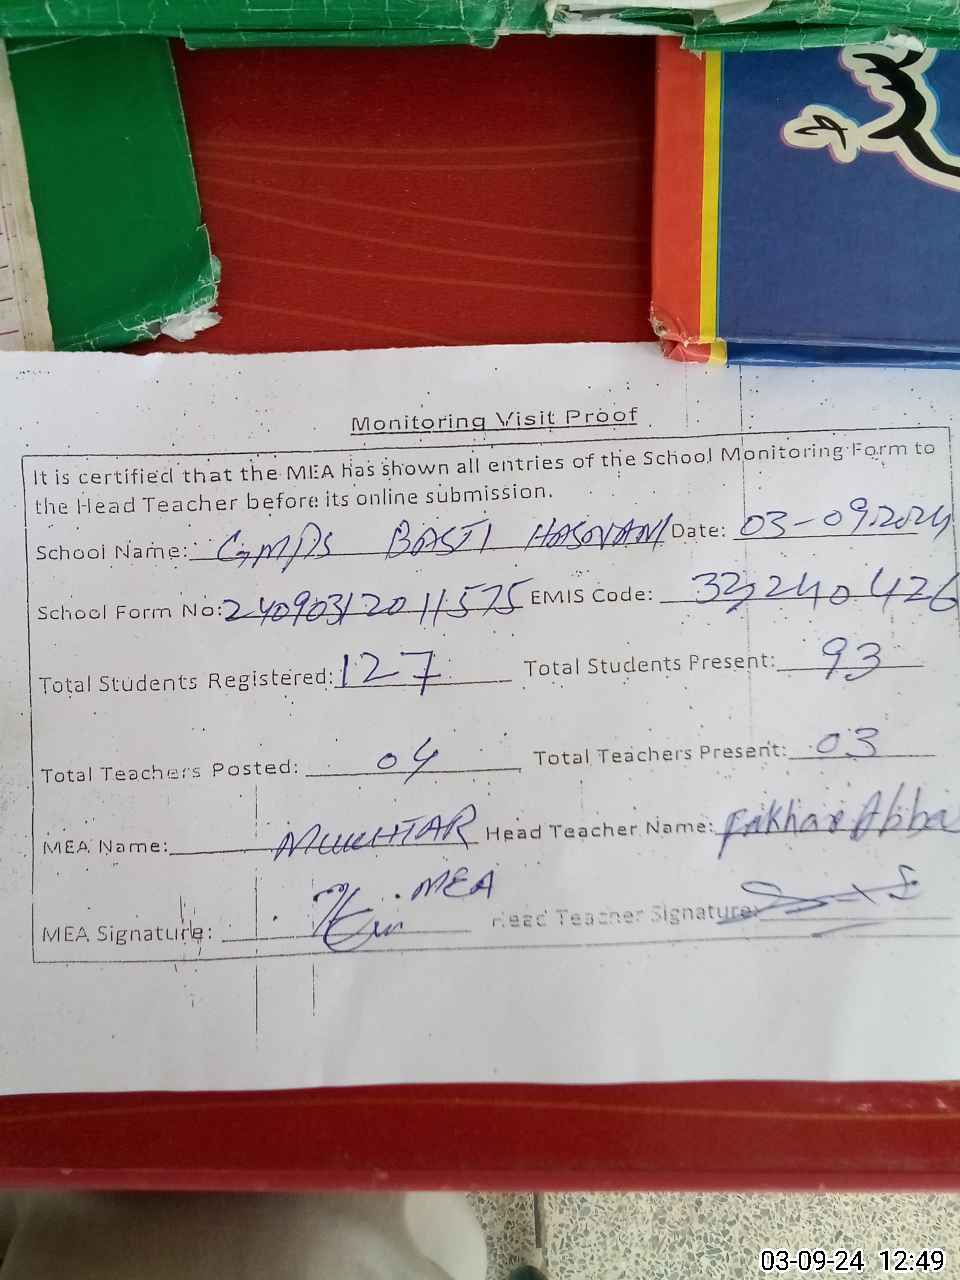 Monitoring Visit Proof
It is certified that the MEA has shown all entries of the School Monitoring Form to
the Head Teacher before its online submission.
School Name: GMPS BASTI HASNANI Date: 03-09-2024
School Form No: 240903120 11575 EMIS Code: 32240426
Total Students Registered: 127 Total Students Present: 93
Total Teachers Posted: 04 Total Teachers Present: 03
MEA Name: MUKHTAR Head Teacher Name: Fakhar Abba
MEA Signature: MEA Head Teacher Signature:
03-09-24 12:49